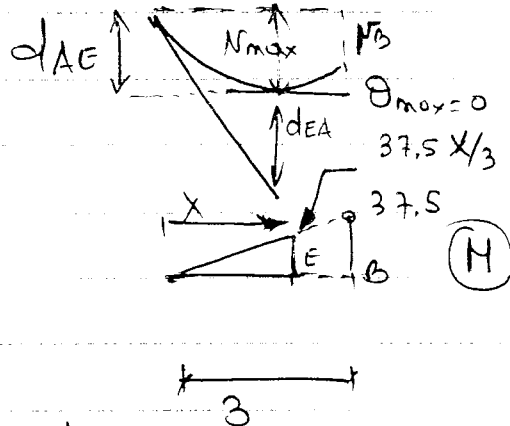 dAE
Nmax
NB
θmax=0
dEA
37.5 X/3
X
37.5
E
B
M
3